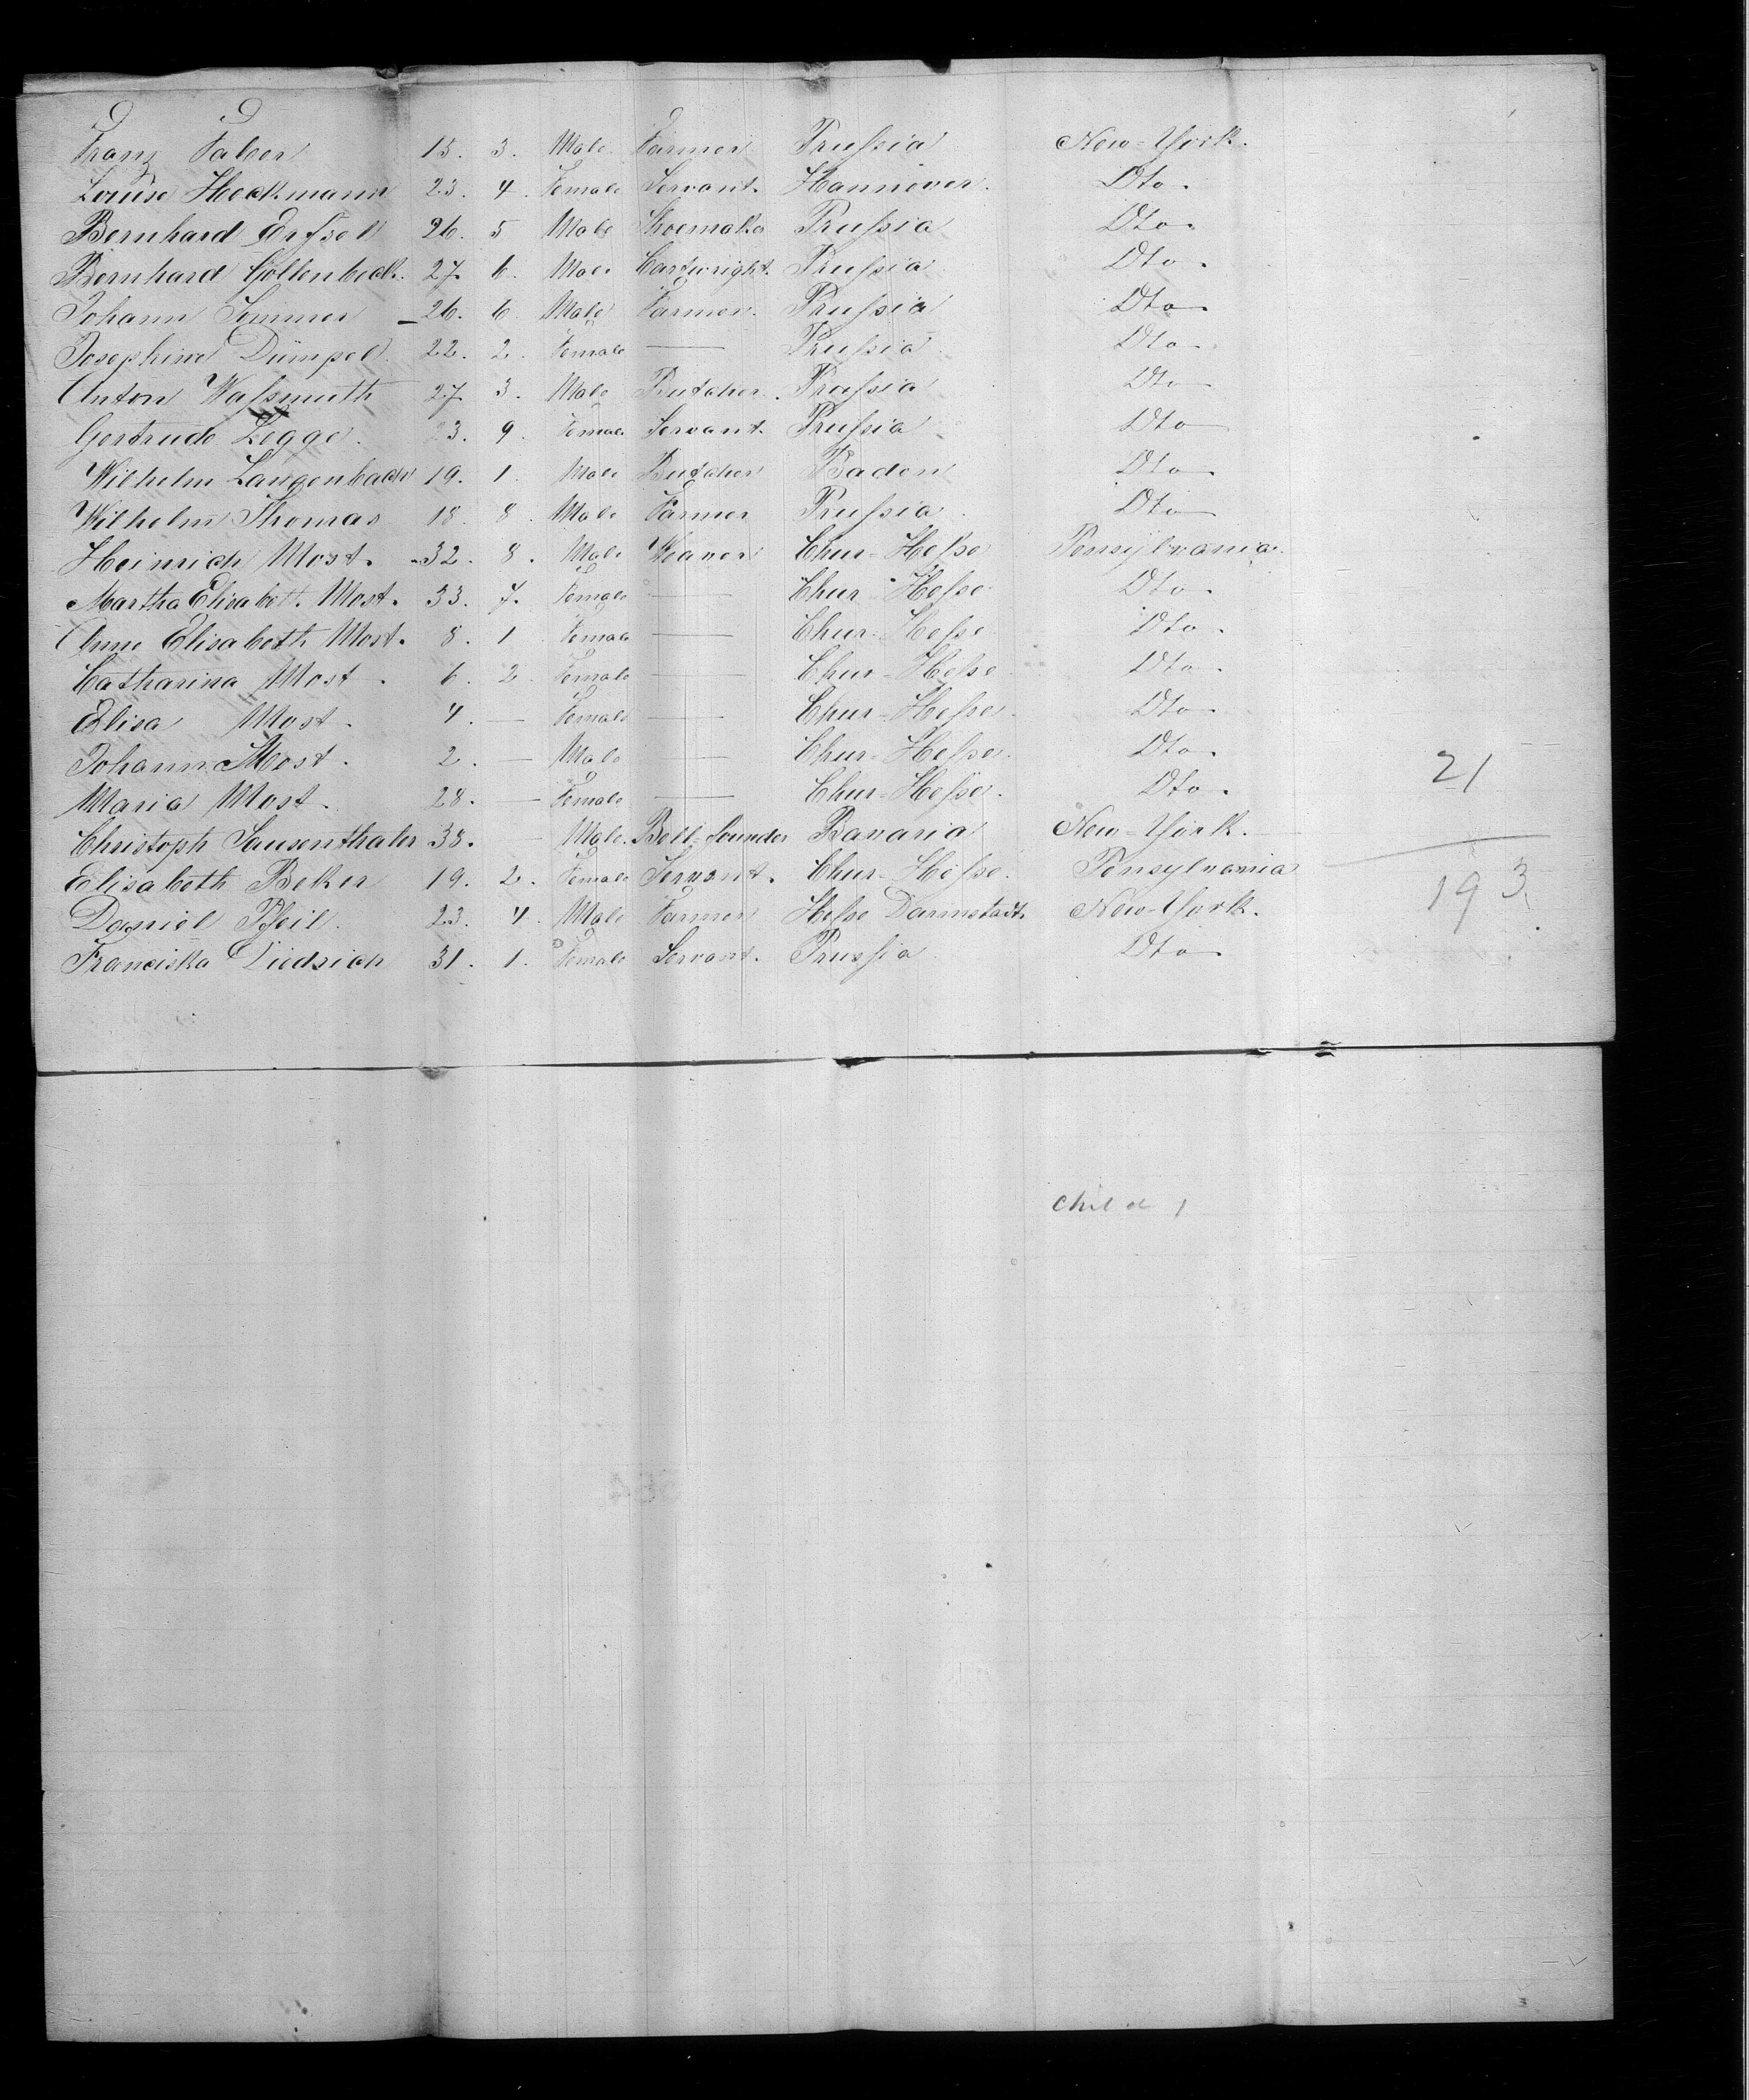 Franz Faber 15. 3. Male Farmer Prussia New-York.
Louise Heckmann 23. 4. Female Servant. Hannover. Dto.
Bernhard 26. 5 Male Shoemaker Prussia Dto.
Bernhard Gollenbeck. 27. 6. Male Cartwright. Prussia Dto.
Johann Simmer 26. 6. Male Farmer. Prussia Dto.
Josephine Dümpel. 22. 2. Female — Prussia. Dto.
Anton Wassmuth 27. 3. Male Butcher. Prussia Dto
Gertrude Legge. 23. 9. Female Servant. Prussia Dto
Wilhelm Langenbach 19. 1. Male Butcher Baden Dto.
Wilhelm Thomas 18. 8. Male Farmer Prussia. Dto
Heinrich Most. 32. 8. Male Weaver Chur-Hesse Pensylvania.
Martha Elisabeth Most. 33. 7. Female — Chur-Hesse. Dto.
Anne Elisabeth Most. 8. 1 Female — Chur-Hesse Dto.
Catharina Most. 6. 2. Female — Chur-Hesse Dto.
Elisa Most. 4. — Female — Chur-Hesse. Dto.
Johann Most. 2. — Male — Chur-Hesse. Dto.
Maria Most. 28. — Female — Chur-Hesse. Dto.
21
Christoph Sausenthaler 38. — Male. Bell-founder Bavaria New-York.
Elisabeth Beker 19. 2. Female Servant. Chur-Hesse. Pensylvania
193
Daniel Pfeil. 23. 4. Male Farmer Hesse Darmstadt. New-York.
Franciska Diedrich 31. 1. Female Servant. Prussia. Dto
Child 1